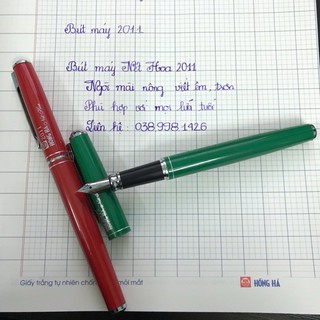 Bút máy 2011.
Bút máy Nét Hoa 2011
Ngòi mài nông viết êm, trơn
Phù hợp với mọi lứa tuổi
Liên hệ : 038.998.1426
Giấy trắng tự nhiên chống mỏi mắt
HỒNG HÀ